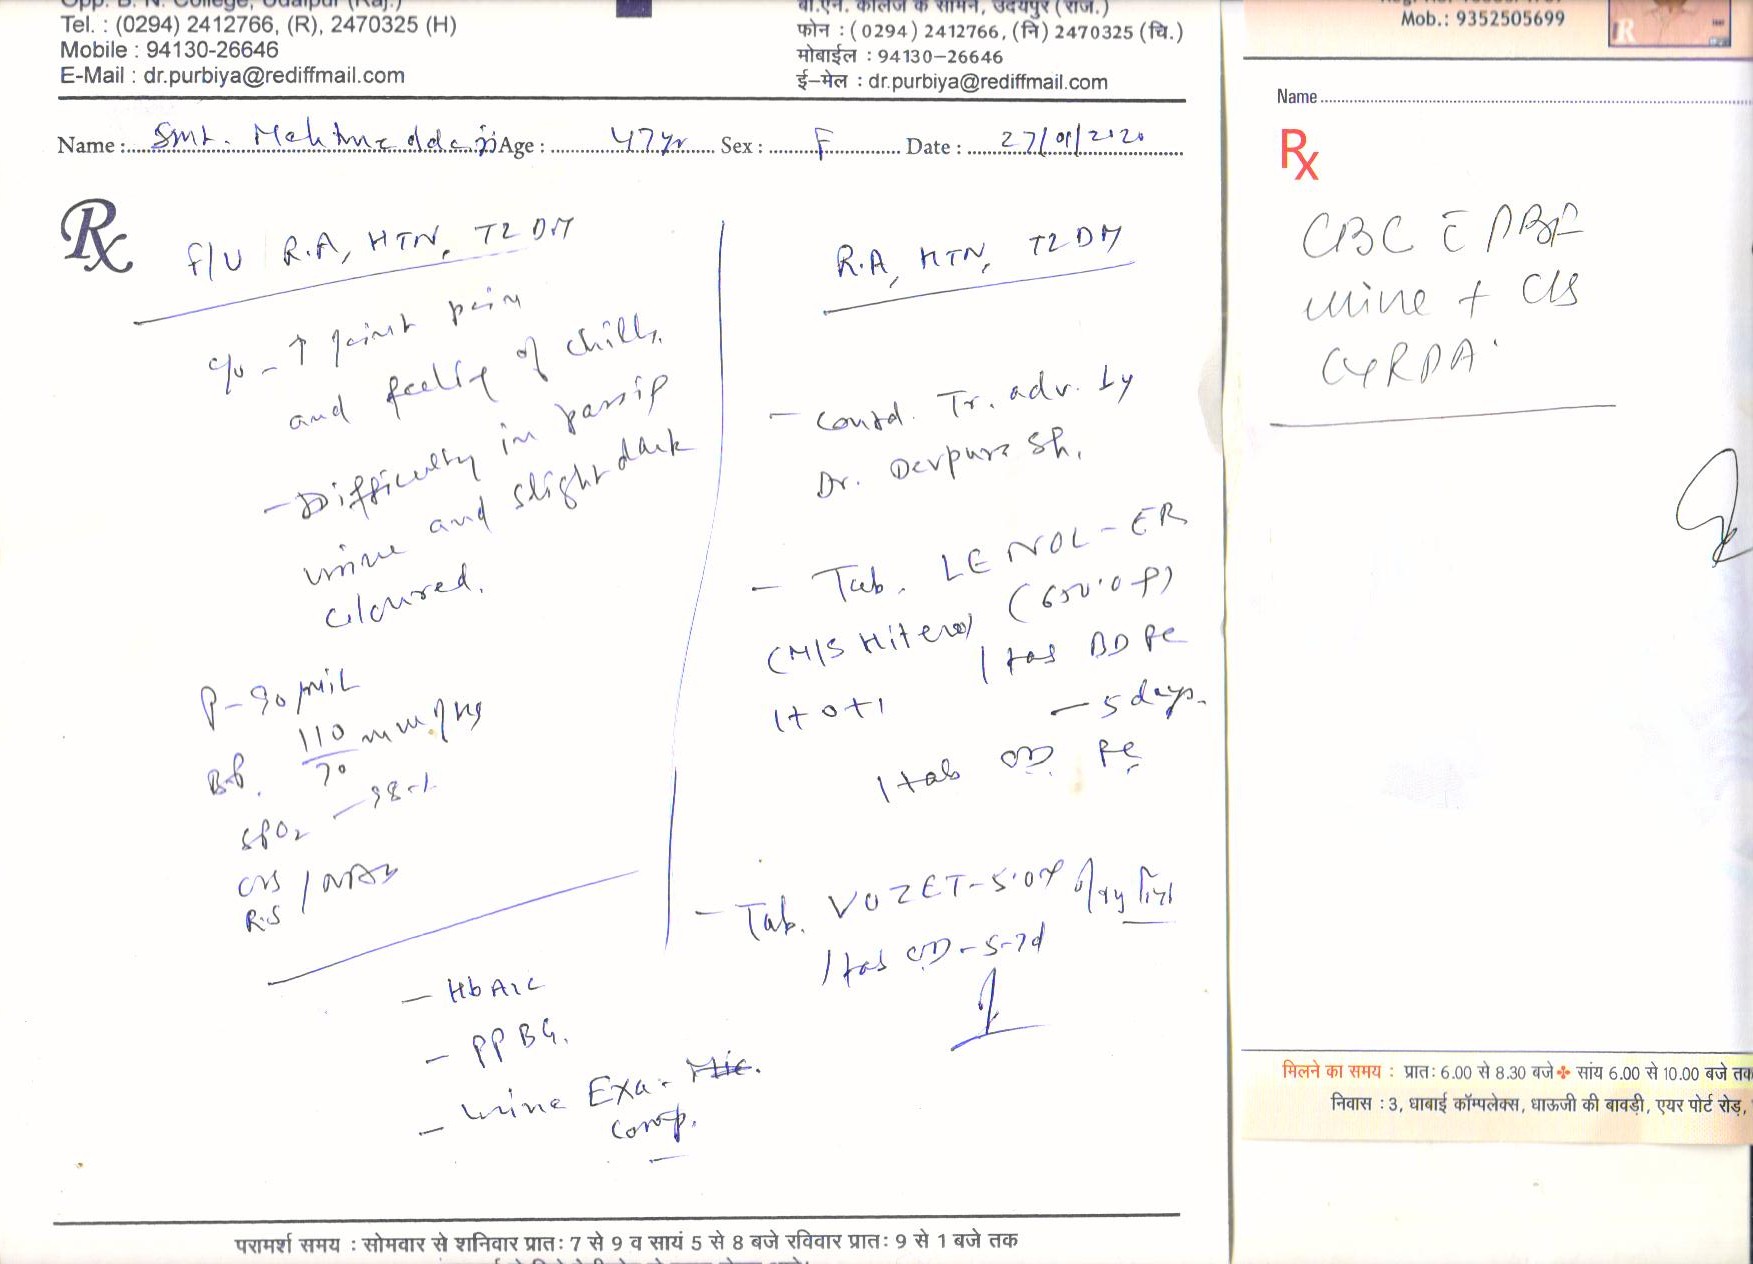 Opp. B. N. College, Udaipur (Raj.)
Tel. : (0294) 2412766, (R), 2470325 (H)
Mobile : 94130-26646
E-Mail : dr.purbiya@rediffmail.com
बी.एन. कॉलेज के सामने, उदयपुर (राज.)
फोन : (0294) 2412766, (नि) 2470325 (चि.)
मोबाईल : 94130-26646
ई-मेल : dr.purbiya@rediffmail.com
Name : Smt. Age : 47yr Sex : F Date : 27/01/2020
Rx
F/U R.A, HTN, T2 DM
c/o - ↑ joint pain
and feeling of chills.
- Difficulty in passing
urine and slight dark
coloured.
P - 90/min
BP. 110/70 mm/Hg
SPO2 - 98%
CVS
R.S / NAD
- HbA1C
- PPBG.
- Urine Exa-
Comp.
R.A, HTN, T2 DM
- Contd. Tr. adv. by
Dr. Devpura Sh.
- Tab. LENOL-ER
(M/S Hitero) (650)
1 tab BD PC
1+0+1 - 5 days.
1 tab OD PC
- Tab. VOZET-5
1 tab OD - 5-7d
परामर्श समय : सोमवार से शनिवार प्रातः 7 से 9 व सायं 5 से 8 बजे रविवार प्रातः 9 से 1 बजे तक
Mob.: 9352505699
Name
Rx
CBC c PBF
urine + C/S
मिलने का समय : प्रातः 6.00 से 8.30 बजे सांय 6.00 से 10.00 बजे तक
निवास : 3, धाबाई कॉम्पलेक्स, धाऊजी की बावड़ी, एयर पोर्ट रोड़,